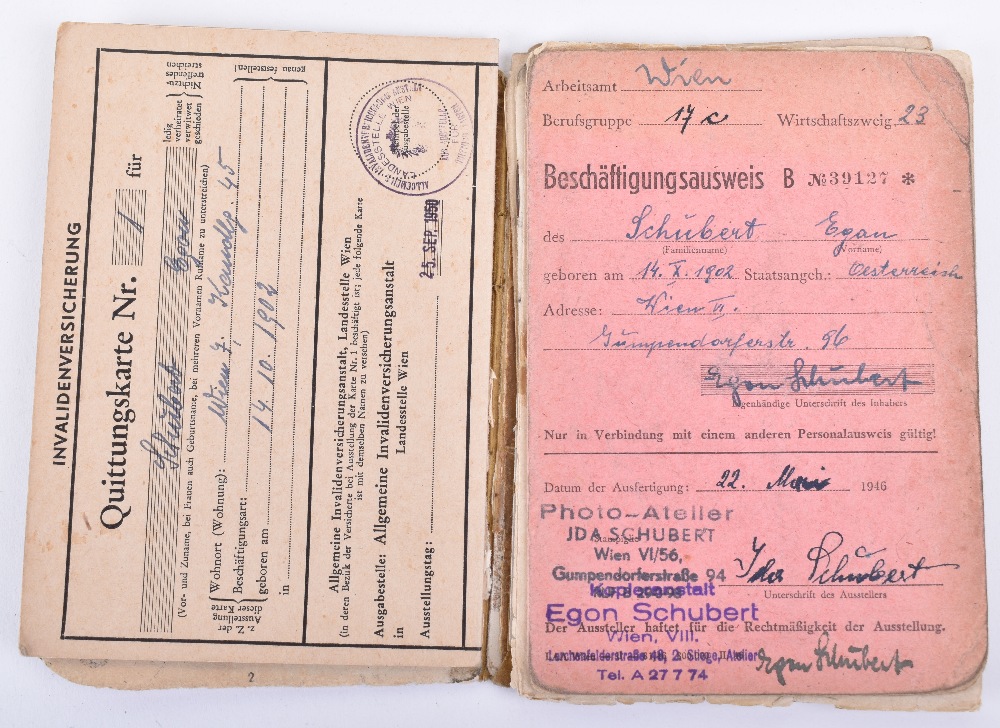 INVALIDENVERSICHERUNG
Quittungskarte Nr. 1 für
Schubert Egon
ledig
verheiratet
verwitwet
geschieden
Nichtzu-
treffendes
streichen
(Vor- und Zuname, bei Frauen auch Geburtsname, bei mehreren Vornamen Rufname zu unterstreichen)
z. Z. der
Ausstellung
dieser Karte
Wohnort (Wohnung): Wien 7, 45
Beschäftigungsart:
geboren am 14. 10. 1902
in
genau feststellen!
Allgemeine Invalidenversicherungsanstalt, Landesstelle Wien
(in deren Bezirk der Versicherte bei Ausstellung der Karte Nr. 1 beschäftigt ist; jede folgende Karte
ist mit demselben Namen zu versehen)
Ausgabestelle: Allgemeine Invalidenversicherungsanstalt
in Landesstelle Wien
Ausstellungstag: 25. SEP. 1950
ALLGEMEINE INVALIDENVERSICHERUNGSANSTALT
LANDESSTELLE WIEN
2
Arbeitsamt Wien
Berufsgruppe 17 c Wirtschaftszweig 23
Beschäftigungsausweis B № 39127 *
des Schubert Egon
(Familienname) (Vorname)
geboren am 14. X. 1902 Staatsangeh.: Oesterreich
Adresse: Wien VI.
Gumpendorferstr. 96
Egon Schubert
Eigenhändige Unterschrift des Inhabers
Nur in Verbindung mit einem anderen Personalausweis gültig!
Datum der Ausfertigung: 22. Mai 1946
Photo-Atelier
JDA SCHUBERT
Wien VI/56,
Gumpendorferstraße 94
Ida Schubert
Unterschrift des Ausstellers
Kopieranstalt
Egon Schubert
Der Aussteller haftet für die Rechtmäßigkeit der Ausstellung.
Wien, VIII.
Lerchenfelderstraße 48, 2. Stiege, Atelier
Egon Schubert
Tel. A 27 7 74